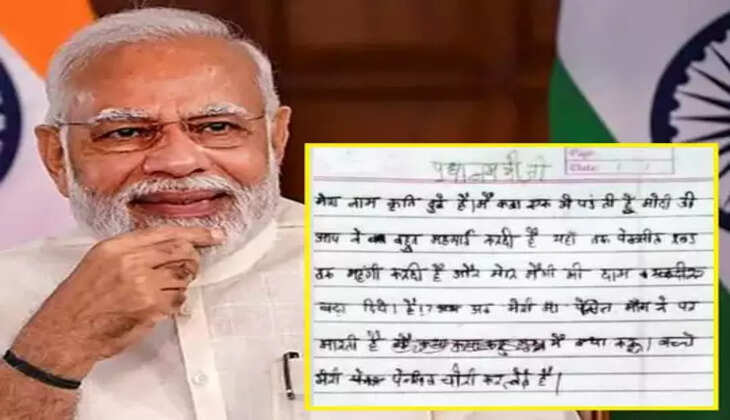 Date: / /
पधानमत्री जी
मेरा नाम कृति दुबे है। मैं कक्षा एक में पढती हूँ मोदी जी
आप ने बहुत महगाई करदी है यहाँ तक पेन्सील रबड
तक महंगी करदी है और मेरे मैगी की दाम
बढा दिये। है।? अब मेरी मा पेंसिल माँग ने पर
मारती है मैं क्या करू। बच्चे
मेरी पेन्सिल चोरी कर लेते है।